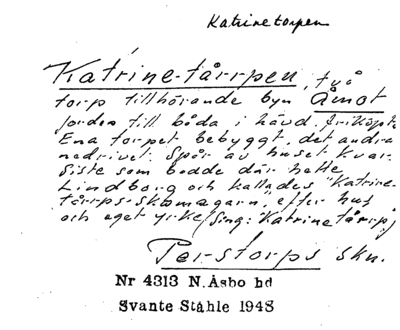 Katrinetorpen
Katrine-tårrpen, två
torp tillhörande byn Åmot
jorden till båda i hävd. friköpta
Ena torpet bebyggt, det andra
nedrivet. Spår av huset kvar.
Siste som bodde där hette
Lindborg och kallades "Katrine-
tårrps-skomagarn" efter hus
och eget yrke/Sing: Katrinetårrp/
Per-storps skn.
Nr 4313 N.Åsbo hd
Svante Ståhle 1948